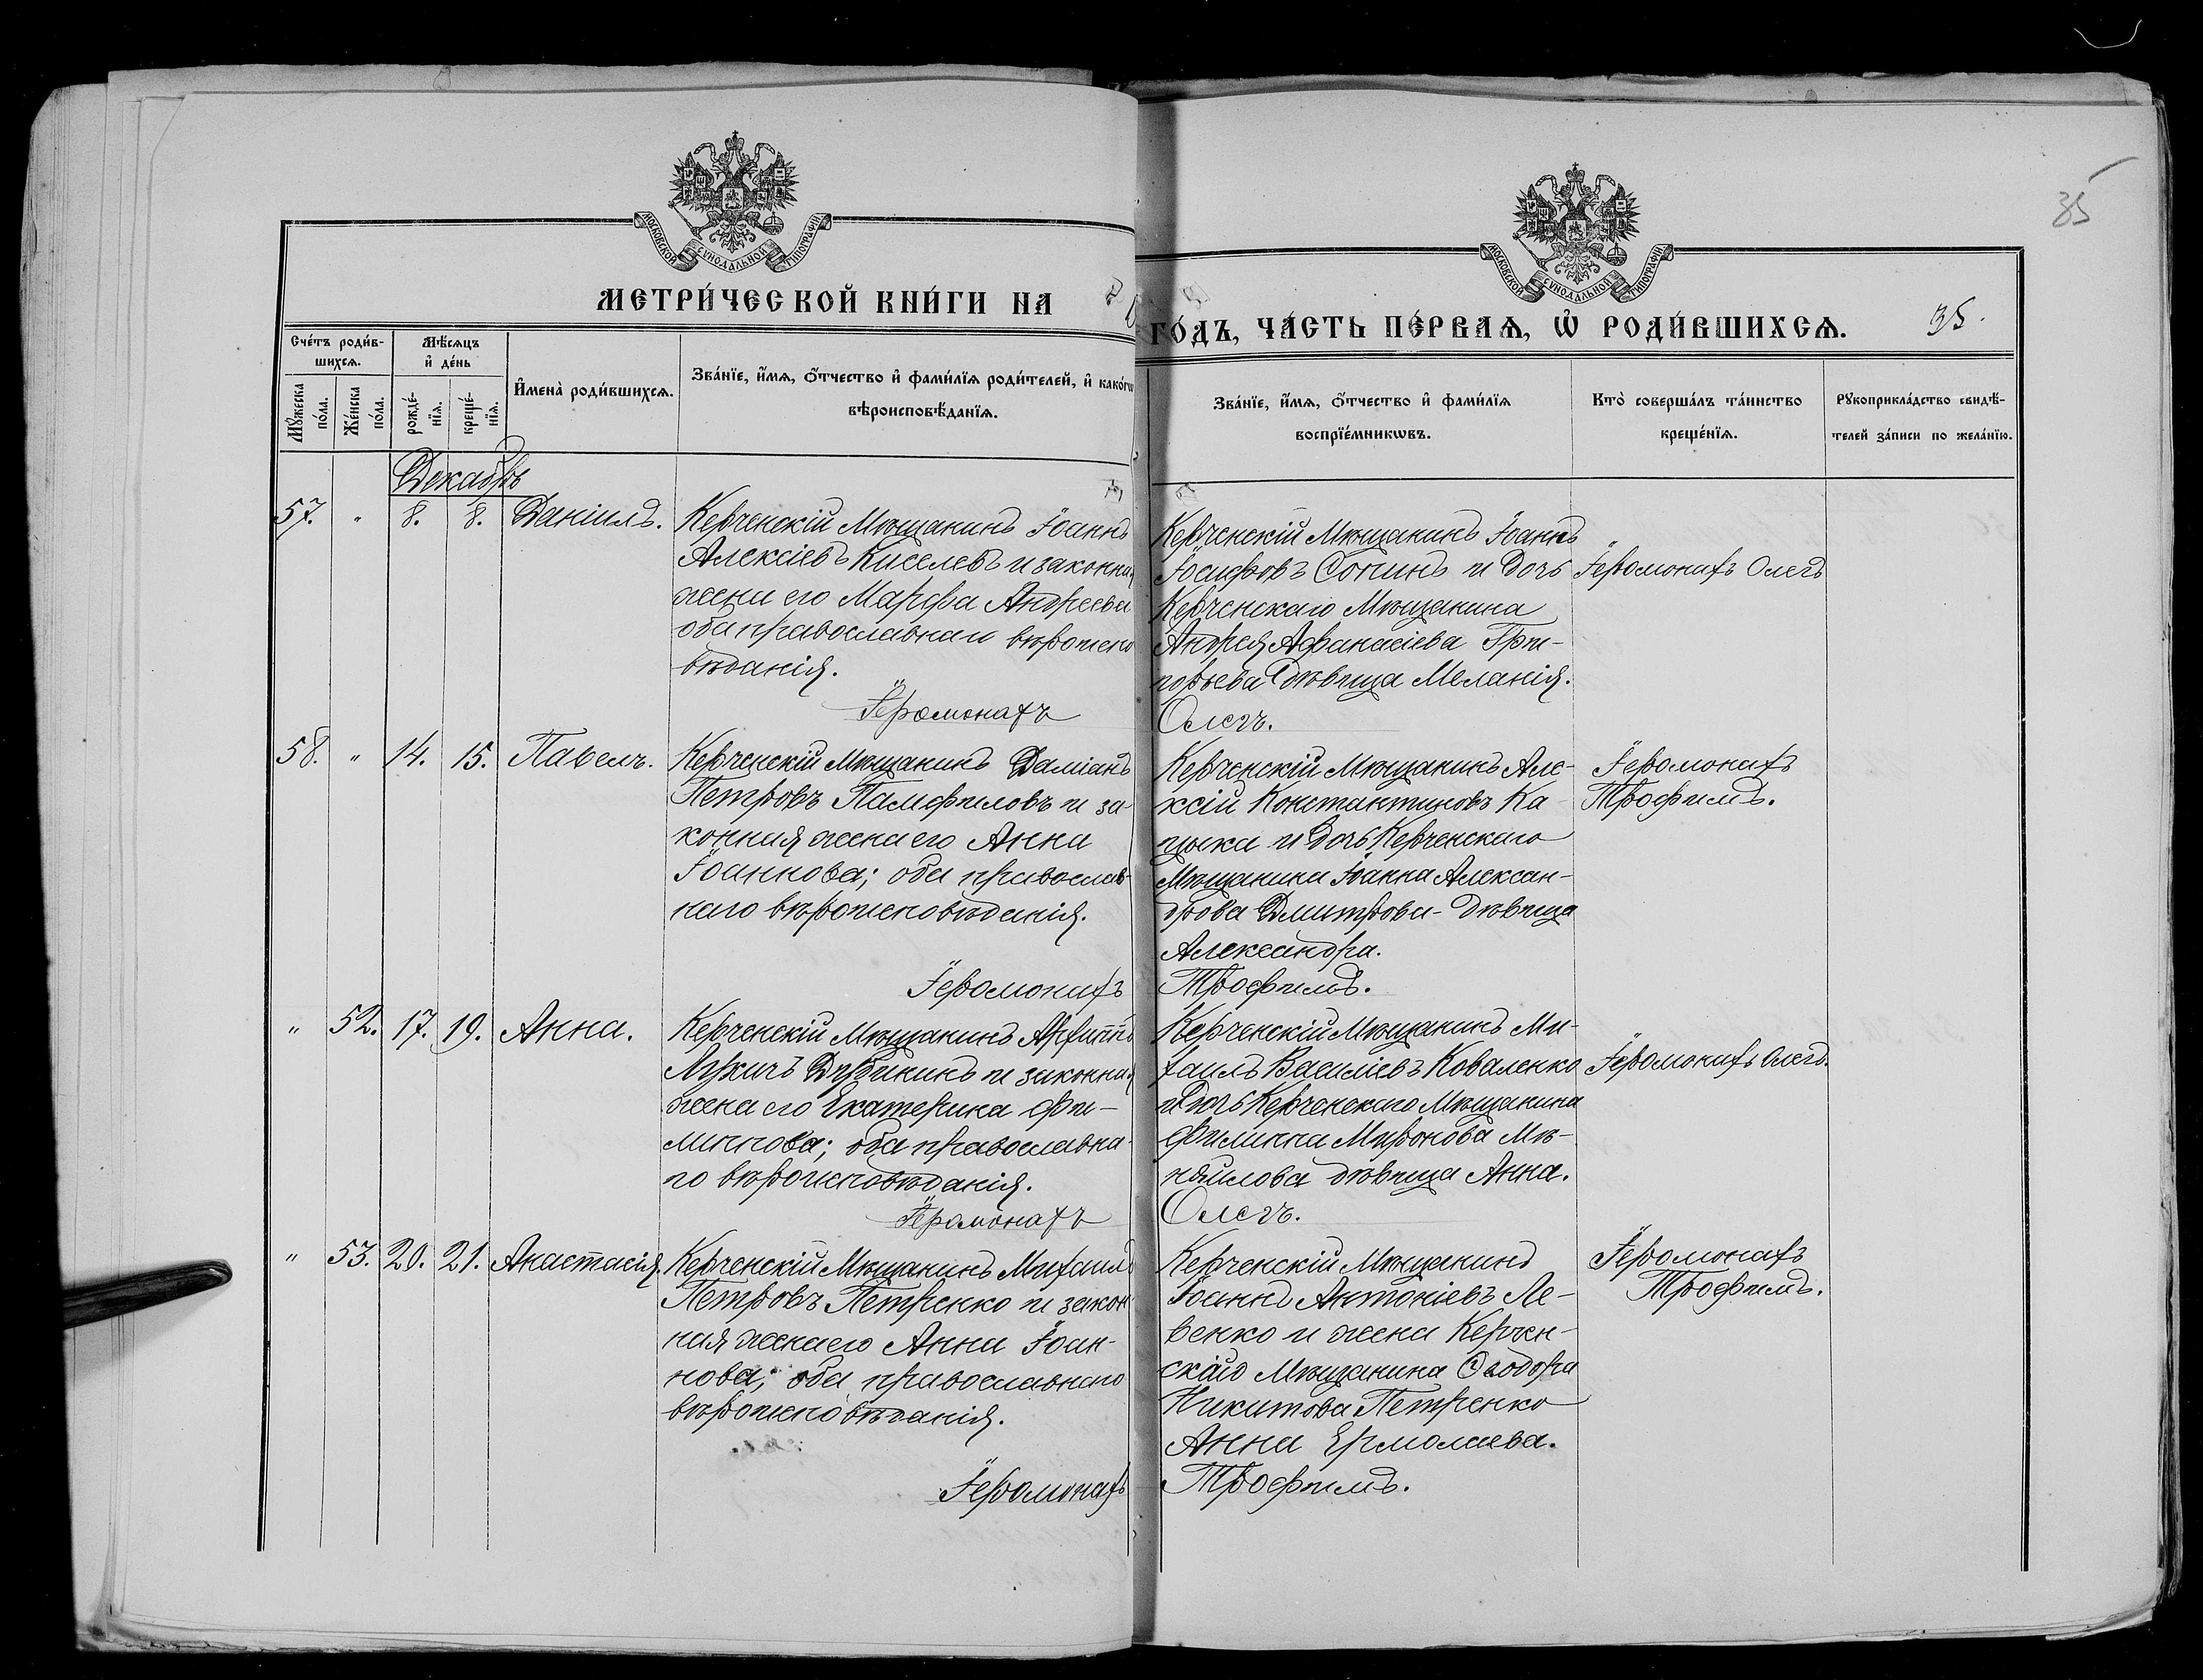 35
МОСКОВСКОЙ СѴНОДАЛЬНОЙ ТИПОГРАФІИ
МОСКОВСКОЙ СѴНОДАЛЬНОЙ ТИПОГРАФІИ
МЕТРИ́ЧЕСКОЙ КНИ́ГИ НА
ГО́ДЪ, ЧА́СТЬ ПЕ́РВАѦ, Ѽ РОДИ́ВШИХСѦ.
35.
Сче́тъ роди́в-
шихсѧ.
Мѣ́сѧцъ
и҆ де́нь
Мꙋ́жеска
по́ла.
Же́нска
по́ла.
рожде́-
нїѧ.
креще́-
нїѧ.
И҆мена̀ роди́вшихсѧ.
Зва́нїе, и҆́мѧ, ѻ҆́тчество и҆ фами́лїѧ роди́телей, и҆ како́гѡ
вѣроисповѣ́данїѧ.
Зва́нїе, и҆́мѧ, ѻ҆́тчество и҆ фами́лїѧ
воспрїе́мникѡвъ.
Кто̀ соверша́лъ та́инство
креще́нїѧ.
Рꙋкоприкла́дство свидѣ́-
телей за́писи по жела́нїю.
Декабрь
57. " 8. 8. Данiилъ.
Керченскiй Мѣщанинъ Iоаннъ
Алексiевъ Киселевъ и законная
жена его Марфа Андреева
оба православнаго вѣроиспо
вѣданiя.
Iеромонахъ
Керченскiй Мѣщанинъ Iоаннъ
Iосифовъ Сопинъ и дочь
Керченскаго Мѣщанина
Андрея Афанасiева Гри-
горьева дѣвица Меланiя.
Олегъ.
Iеромонахъ Олегъ
58. " 14. 15. Павелъ.
Керченскiй Мѣщанинъ Дамiанъ
Петровъ Памфиловъ и за-
конная жена его Анна
Iоаннова; оба православ-
наго вѣроисповѣданiя.
Iеромонахъ
Керченскiй Мѣщанинъ Але-
ксiй Константиновъ Ка-
цыка и дочь Керченскаго
Мѣщанина Iоанна Алексан-
дрова Дмитрова- дѣвица
Александра.
Трофимъ.
Iеромонахъ
Трофимъ.
" 52. 17. 19. Анна.
Керченскiй Мѣщанинъ
Лукичъ и законная
жена его Екатерина Фи-
липпова; оба православна-
го вѣроисповѣданiя.
Iеромонахъ
Керченскiй Мѣщанинъ Ми-
хаилъ Василiевъ Коваленко
и дочь Керченскаго Мѣщанина
Филиппа Миронова
дѣвица Анна.
Олегъ.
Iеромонахъ Олегъ.
" 53. 20. 21. Анастасiя.
Керченскiй Мѣщанинъ Михаилъ
Петровъ Петренко и закон-
ная жена его Анна Iоан-
нова; оба православнаго
вѣроисповѣданiя.
Iеромонахъ
Керченскiй Мѣщанинъ
Iоаннъ Антонiевъ Ле-
венко и жена Керчен-
скаго Мѣщанина Ѳеодора
Никитова Петренко
Анна Ермолаева.
Трофимъ.
Iеромонахъ
Трофимъ.